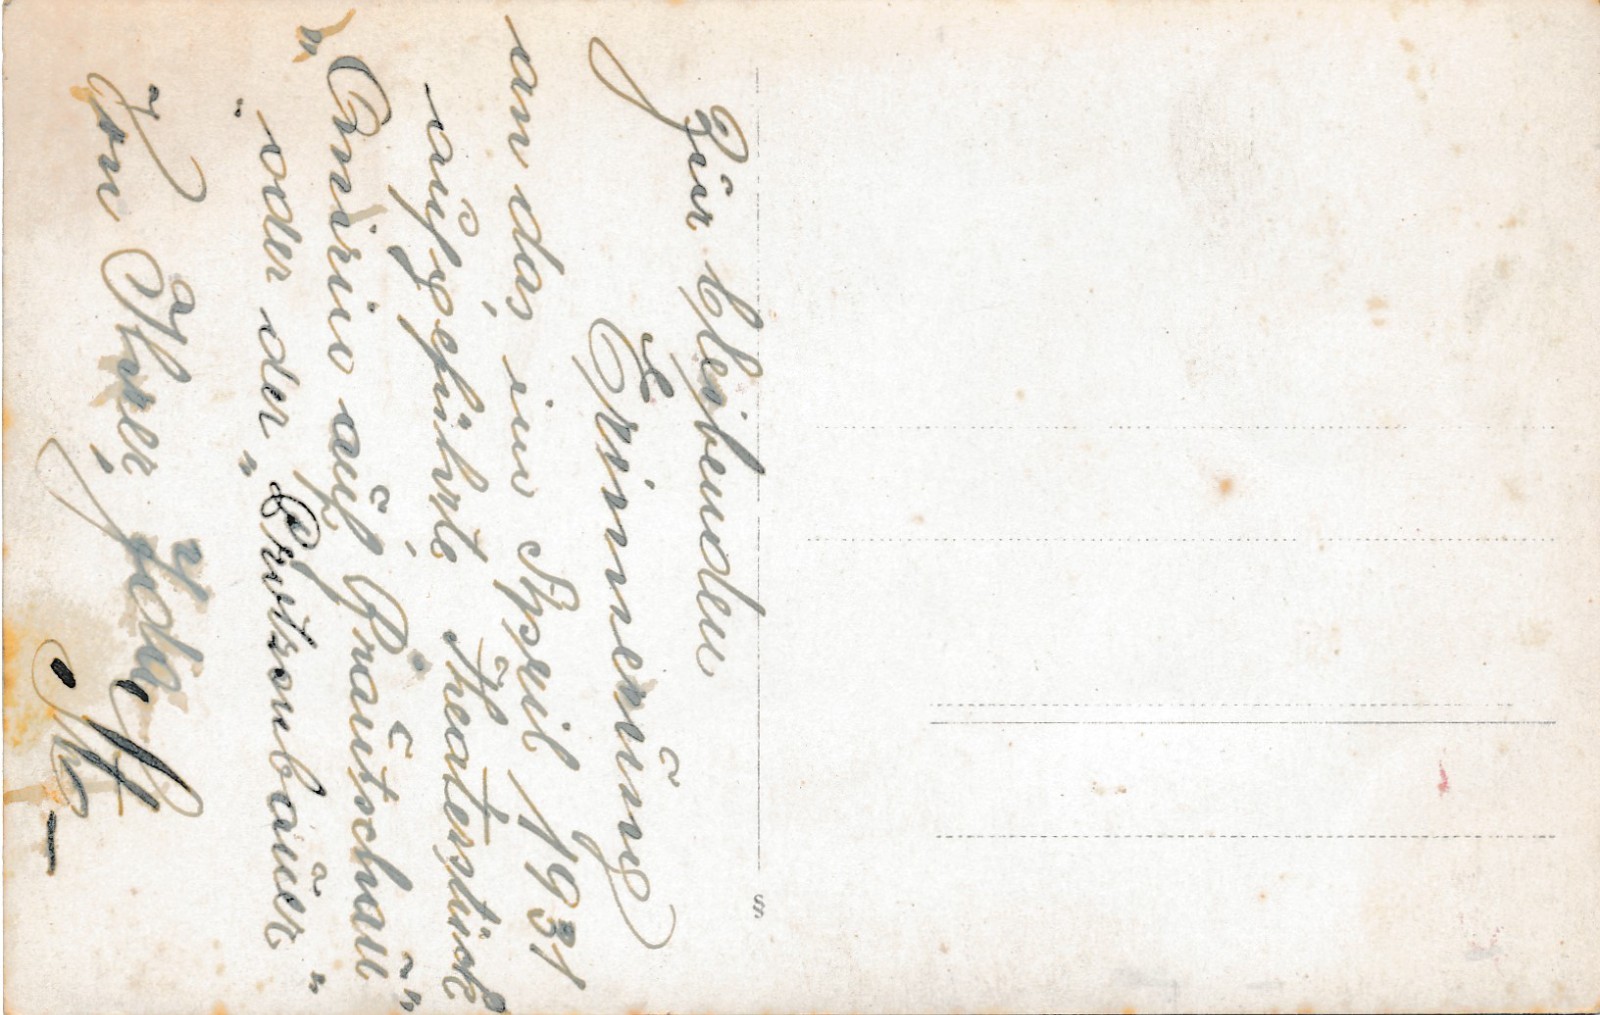 Zur bleibenden
Erinnerung
an das im April 1931
aufgeführte Theaterstück
"Amirio auf Brautschau"
oder der "Protzenbauer"
Von Ihrer
§